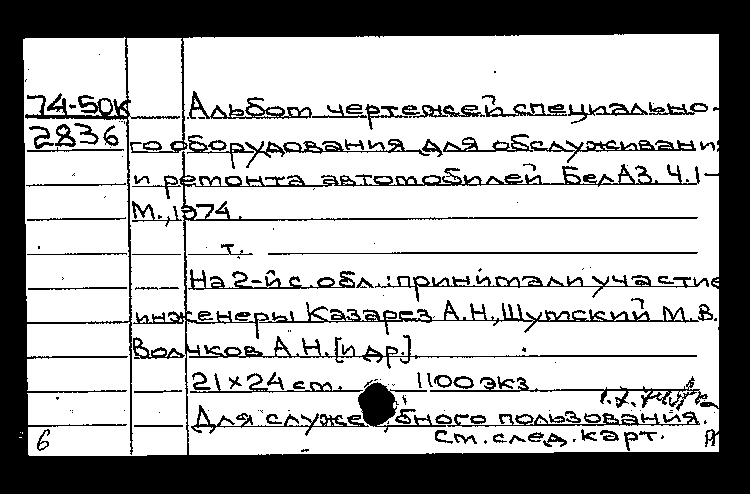 74-50К Альбом чертежей специально-
2836 го оборудования для обслуживани
и ремонта автомобилей БелАЗ. Ч.1-
М., 1974.
т.
На 2-й с. обл.: принимали участие
инженеры Казарез А.Н., Шутский М.В.
Волчков А.Н. [и др.].
21×24 см. 1100 экз.
Для служебного пользования.
6 см. след. карт.